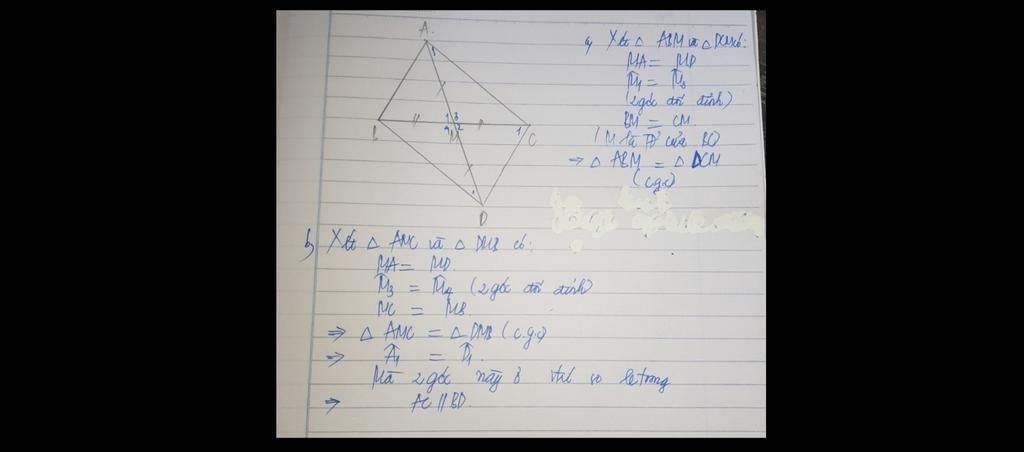 A
1
B
1 3
4 2
M
1
C
1
D
a, Xét △ ABM và △ DCM có:
MA = MD
(2 góc đối đỉnh)
BM = CM
(M là TĐ của BC)
→ △ ABM = △ DCM
(c.g.c)
b, Xét △ AMC và △ DMB có:
MA = MD.
M̂3 = M̂4 (2 góc đối đỉnh)
MC = MB.
⇒ △ AMC = △ DMB (c.g.c)
⇒ Â1 = D̂1.
Mà 2 góc này ở vtrí so le trong
⇒ AC // BD.